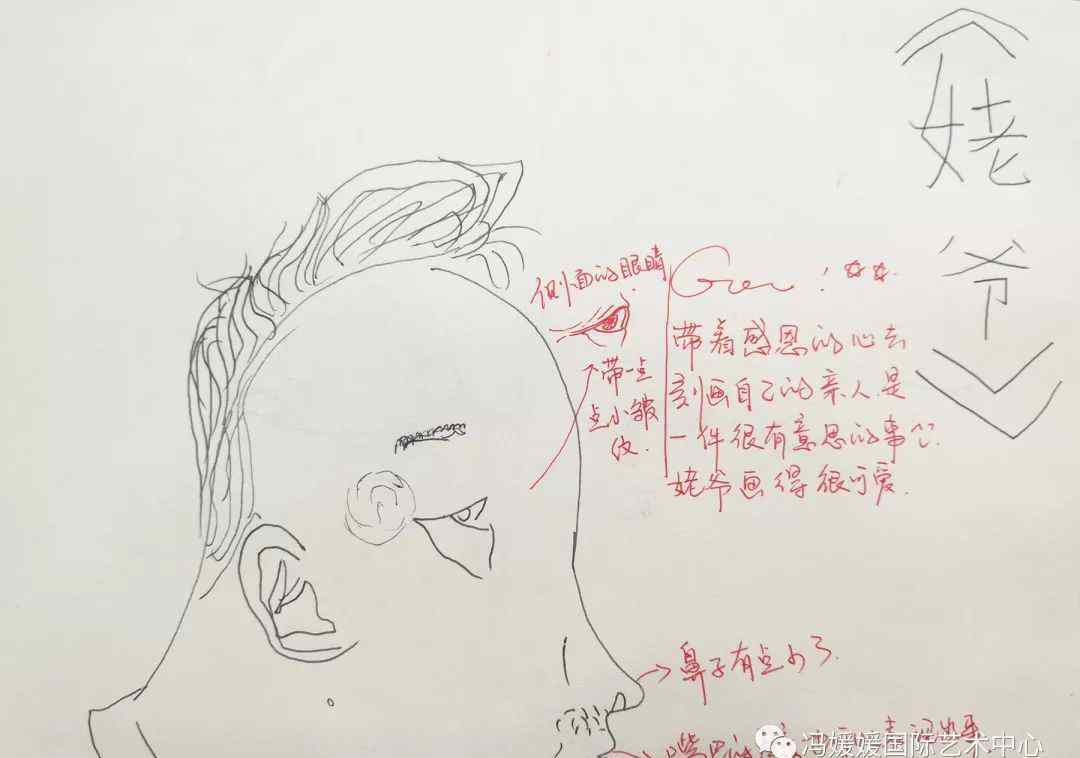 《姥爷》
侧面的眼睛
带一点
点小皱
纹.
Good! ☆☆.
带着感恩的心去
刻画自己的亲人.是
一件很有意思的事心.
姥爷画得很可爱.
→鼻子有点小了.
冯媛媛国际艺术中心